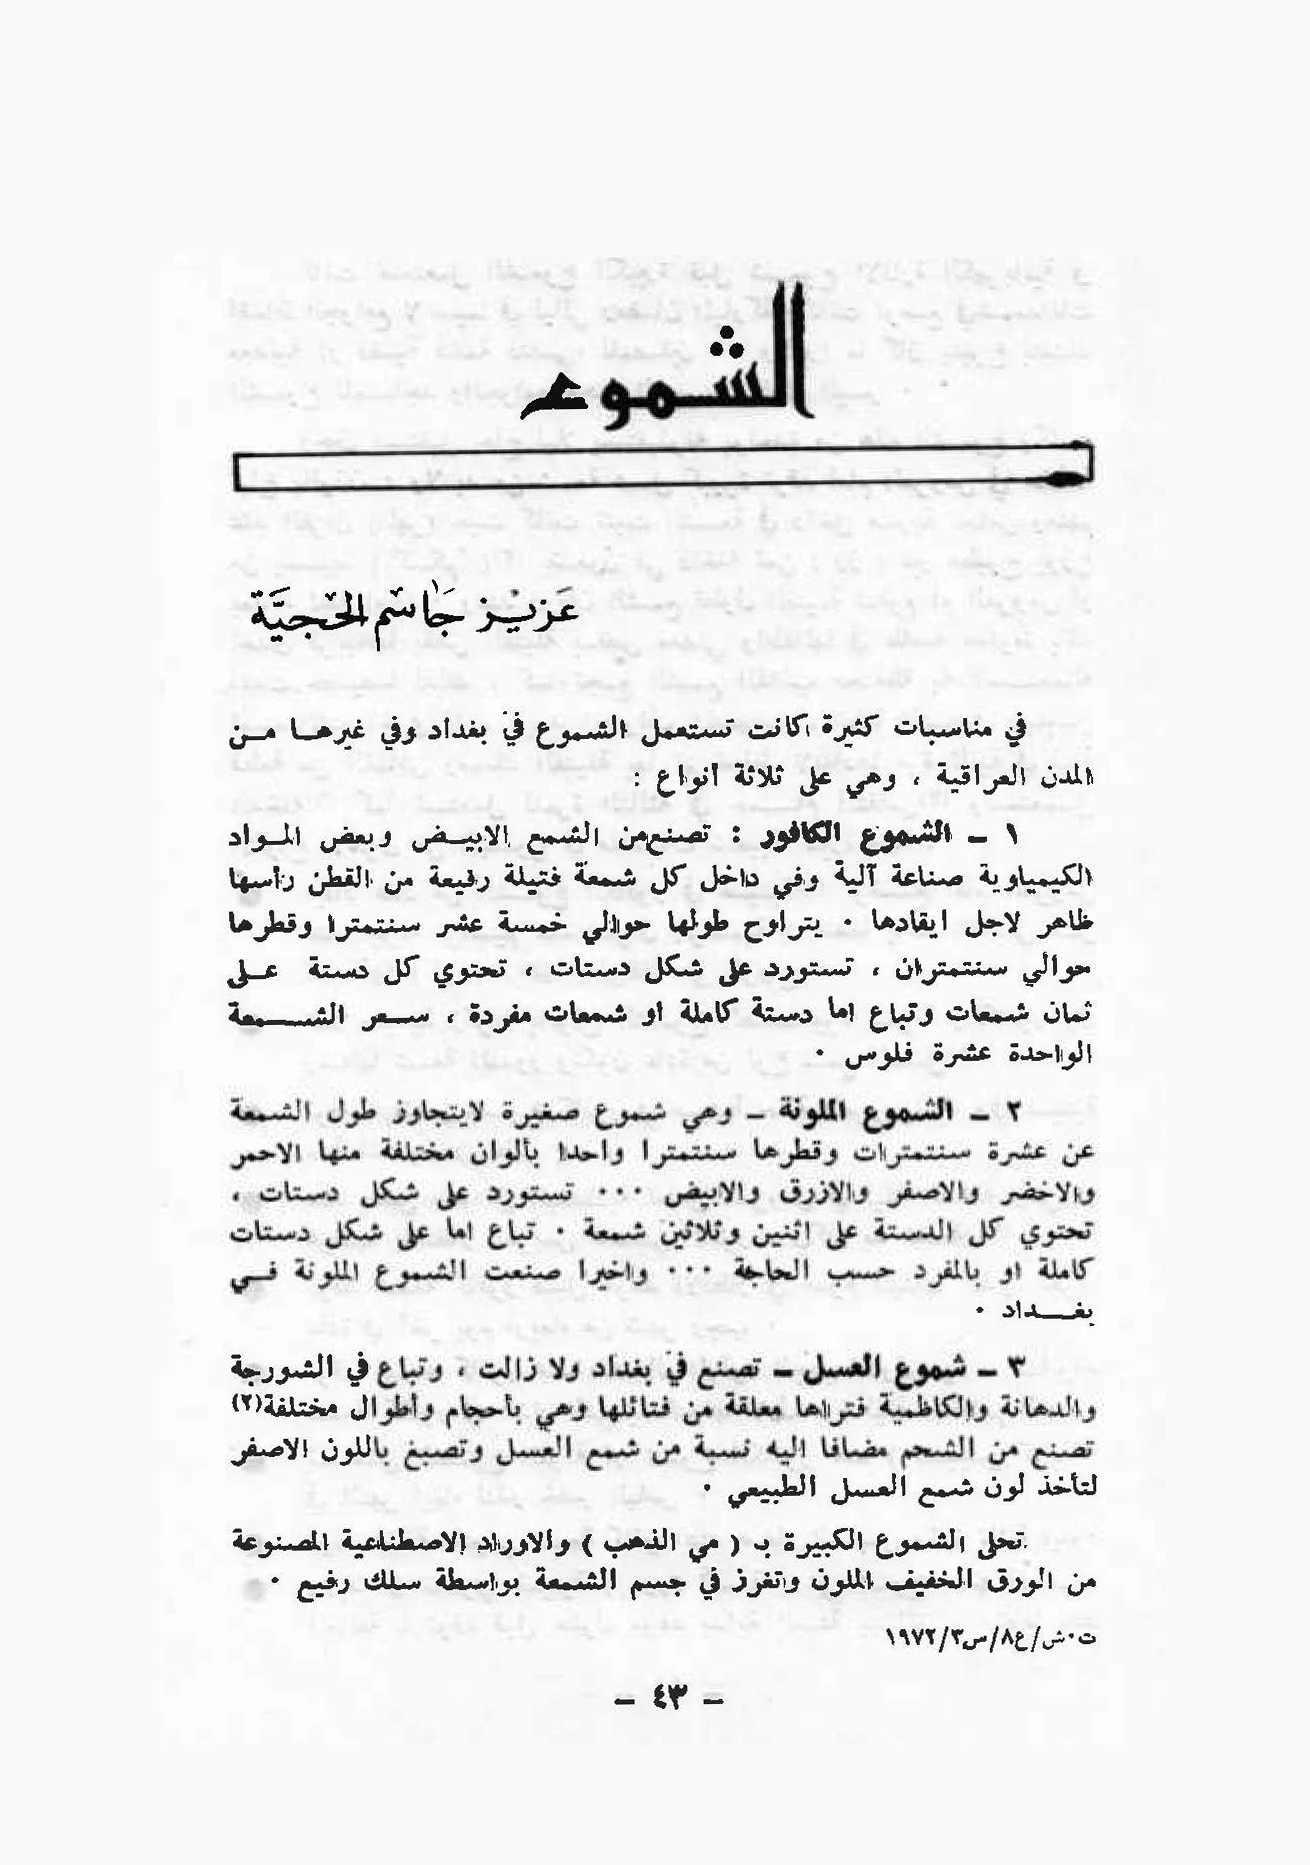 الشموع
عزيز جاسم الحجية
في مناسبات كثيرة كانت تستعمل الشموع في بغداد وفي غيرها من
المدن العراقية ، وهي على ثلاثة أنواع :
١ ـ الشموع الكافور : تصنع من الشمع الابيض وبعض المواد
الكيمياوية صناعة آلية وفي داخل كل شمعة فتيلة رفيعة من القطن رأسها
ظاهر لاجل ايقادها ٠ يتراوح طولها حوالي خمسة عشر سنتمترا وقطرها
حوالي سنتمتران ، تستورد على شكل دستات ، تحتوي كل دستة على
ثمان شمعات وتباع اما دستة كاملة او شمعات مفردة ، سعر الشمعة
الواحدة عشرة فلوس ٠
٢ ـ الشموع الملونة ـ وهي شموع صغيرة لايتجاوز طول الشمعة
عن عشرة سنتمترات وقطرها سنتمترا واحدا بألوان مختلفة منها الاحمر
والاخضر والاصفر والازرق والابيض ٠٠٠ تستورد على شكل دستات ،
تحتوي كل الدستة على اثنين وثلاثين شمعة ٠ تباع اما على شكل دستات
كاملة او بالمفرد حسب الحاجة ٠٠٠ واخيرا صنعت الشموع الملونة في
بغداد ٠
٣ ـ شموع العسل ـ تصنع في بغداد ولا زالت ، وتباع في الشورجة
والدهانة والكاظمية فتراها معلقة من فتائلها وهي بأحجام وأطوال مختلفة(٢)
تصنع من الشحم مضافا اليه نسبة من شمع العسل وتصبغ باللون الاصفر
لتأخذ لون شمع العسل الطبيعي ٠
تحلى الشموع الكبيرة بـ ( مي الذهب ) والاوراد الاصطناعية المصنوعة
من الورق الخفيف الملون وتغرز في جسم الشمعة بواسطة سلك رفيع ٠
ت٠ش/ع٨/س٣/١٩٧٢
ـ ٤٣ ـ